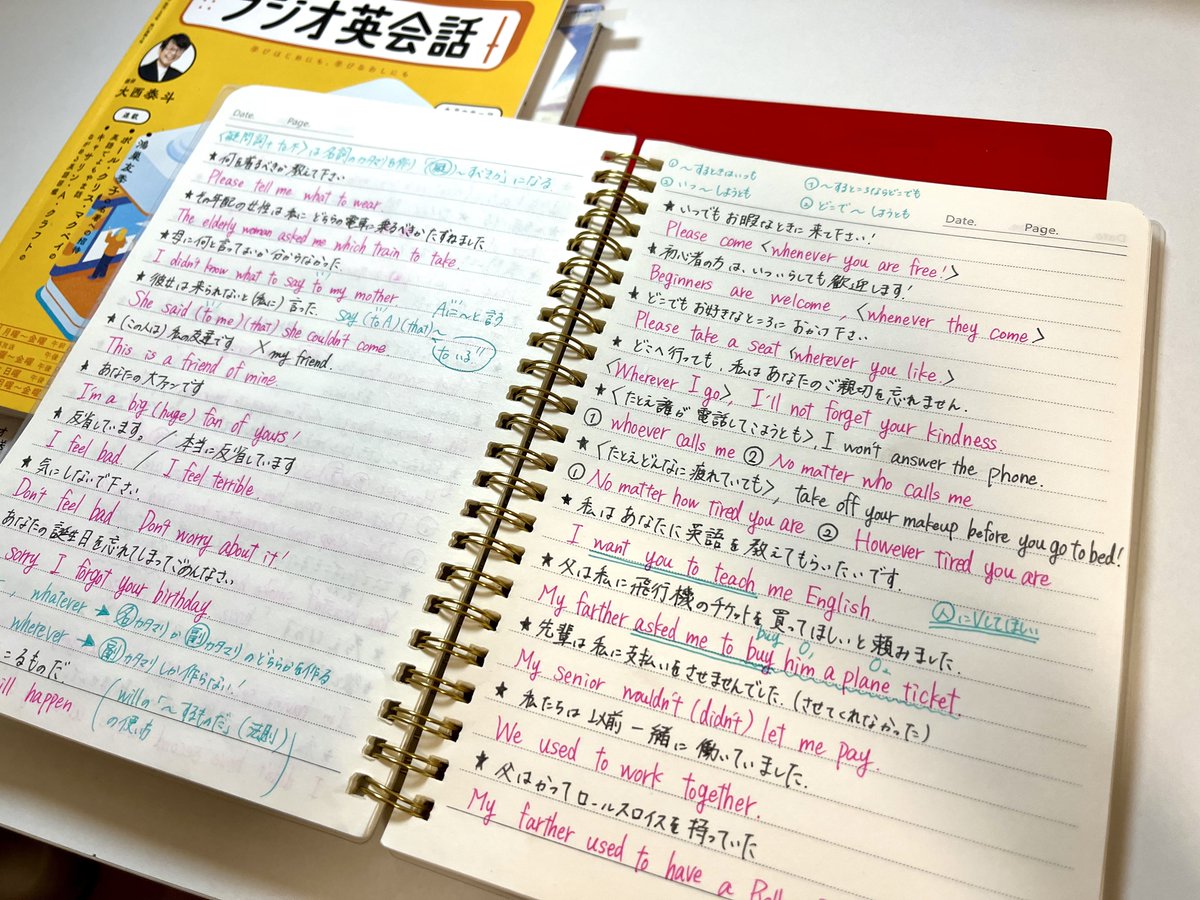 ラジオ英会話
学びはじめにも、学びなおしにも
大西泰斗
連載
Date. Page.
<疑問詞+to不>は名詞のカタマリを作り (疑)～すべきか」になる
★何を着るべきか教えて下さい
Please tell me what to wear
★その年配の女性は私にどちらの電車に乗るべきかたずねました
The elderly woman asked me which train to take.
★母に何と言ってよいか分からなかった
I didn't know what to say to my mother
★彼女は来られないと(私に)言った. say (to A)(that)~
Aに～と言う
She said (to me)(that) she couldn't come
to いる!!
★(この人は)私の友達です ×my friend.
This is a friend of mine.
★あなたの大ファンです
I'm a big (huge) fan of yours!
★反省しています。／本当に反省しています
I feel bad. / I feel terrible.
★気にしないで下さい
Don't feel bad. Don't worry about it!
あなたの誕生日を忘れてしまってごめんなさい
sorry I forgot your birthday
, whatever → 名カタマリか副カタマリのどちらかを作る
wherever → 副カタマリしか作らない
こるものだ
ill happen.
(willの「～するものだ」(法則)
の使い方)
① ～するときはいつも
② いつ～しようとも
① ～するところならどこでも
② どこで～しようとも
Date. Page.
★いつでもお暇なときに来て下さい!
Please come <whenever you are free!>
★初心者の方は、いついらしても歓迎します!
Beginners are welcome, <whenever they come>
★どこでもお好きなところにおかけ下さい
Please take a seat <wherever you like.>
★どこへ行っても、私はあなたのご親切を忘れません.
<Wherever I go> I'll not forget your kindness.
★<たとえ誰が電話してこようとも>, I won't answer the phone.
① whoever calls me ② No matter who calls me
★<たとえどんなに疲れていても>, take off your makeup before you go to bed!
① No matter how tired you are ② However tired you are
★私はあなたに英語を教えてもらいたいです.
I want you to teach me English.
人にVしてほしい
★父は私に飛行機のチケットを買ってほしいと頼みました.
buy O₁ O₂
My farther asked me to buy him a plane ticket.
★先輩は私に支払いをさせませんでした. (させてくれなかった)
My senior wouldn't (didn't) let me pay.
★私たちは以前一緒に働いていました.
We used to work together.
★父はかつてロールスロイスを持っていた
My farther used to have a Roll